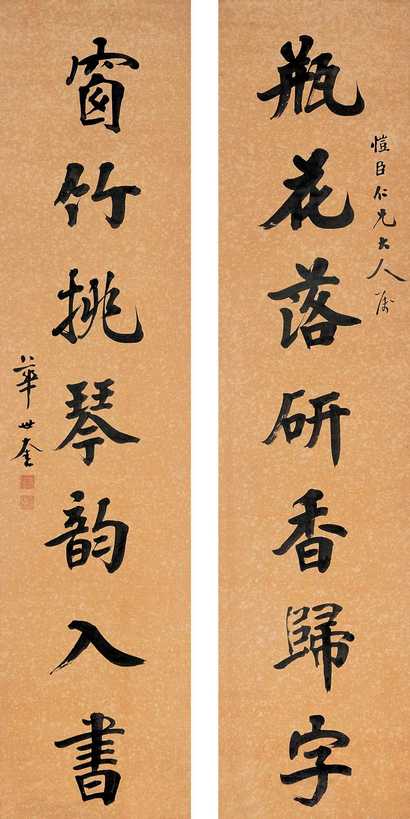 瓶花落研香歸字
愷臣仁兄大人屬
窗竹挑琴韵入書
華世奎